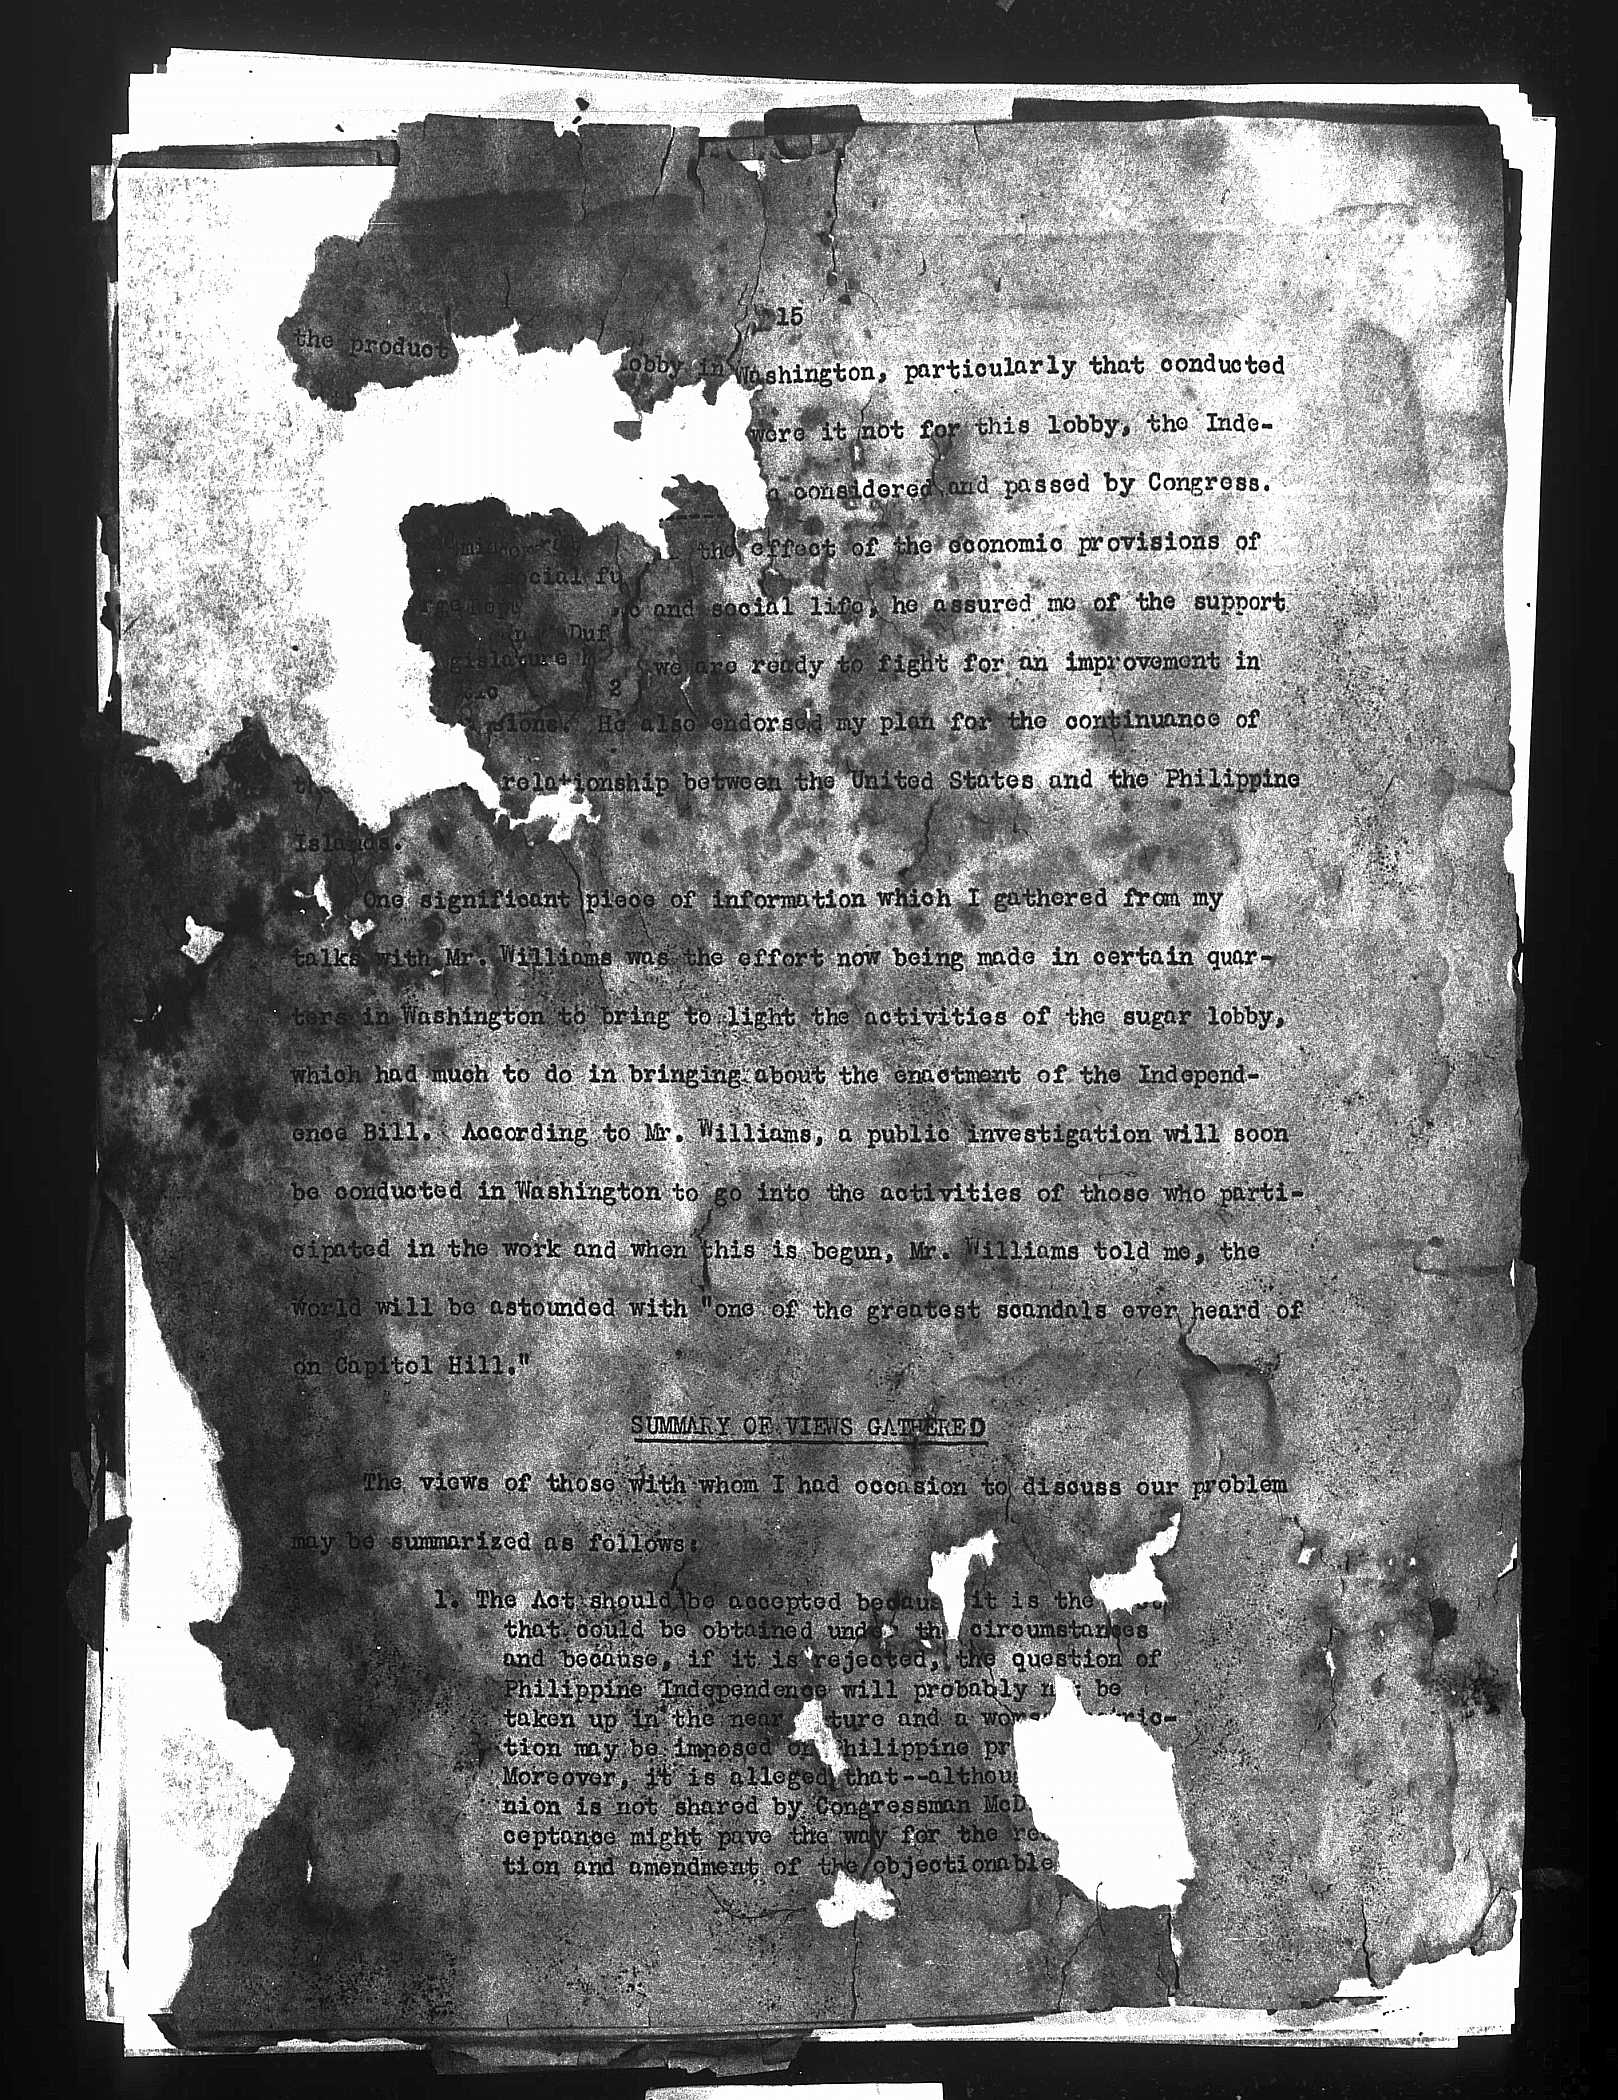 15
the product obby in Washington, particularly that conducted
were it not for this lobby, the Inde-
considered and passed by Congress.
the effect of the economic provisions of
ocial fu
and social life, he assured me of the support
Duf
gislature
we are ready to fight for an improvement in
2
sions." He also endorsed my plan for the continuance of
relationship between the United States and the Philippine
Islands.
One significant piece of information which I gathered from my
talks with Mr. Williams was the effort now being made in certain quar-
ters in Washington to bring to light the activities of the sugar lobby,
which had much to do in bringing about the enactment of the Independ-
ence Bill. According to Mr. Williams, a public investigation will soon
be conducted in Washington to go into the activities of those who parti-
cipated in the work and when this is begun, Mr. Williams told me, the
world will be astounded with "one of the greatest scandals ever heard of
on Capitol Hill."
SUMMARY OF VIEWS GATHERED
The views of those with whom I had occasion to discuss our problem
may be summarized as follows:
1. The Act should be accepted becaus it is the
that could be obtained under th circumstances
and because, if it is rejected, the question of
Philippine Independence will probably n t be
taken up in the near ture and a wors ric-
tion may be imposed on Philippine pr
Moreover, it is alleged that--althou
nion is not shared by Congressman McD
ceptance might pave the way for the re
tion and amendment of the objectionable